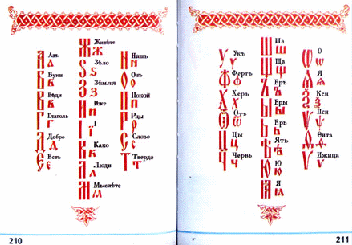 Азъ
А а
Буки
Б б
Вѣди
В в
Глаголь
Г г
Добро
Д д
Есть
Є є
Живѣте
Ж ж
Ѕѣло
Ѕ ѕ
Земля
З з
Иже
И и
І ї
Како
К к
Люди
Л л
Мыслѣте
М м
Нашъ
Н н
Онъ
О о
Покой
П п
Рцы
Р р
Слово
С с
Твердо
Т т
210
Укъ
У у
Фертъ
Ф ф
Херъ
Х х
Отъ
Ѿ ѿ
Цы
Ц ц
Червь
Ч ч
Ша
Ш ш
Ща
Щ щ
Еръ
Ъ ъ
Еры
Ы ы
Ерь
Ь ь
Ять
Ѣ ѣ
Ю
Ю ю
Я
О
Я
Кси
Ѯ ѯ
Пси
Ѱ ѱ
Ѳита
Ѳ ѳ
Ижица
Ѵ ѵ
211